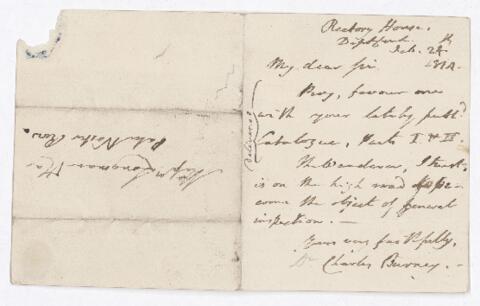 Rectory House,
Deptford
Feb. 24
1814.
My dear Sir
Pray, favour me
with your lately publ.d
Catalogue, Parts I & II
The Wanderer, I trust,
is on the high road to be-
come the object of general
inspection. —
Yours very faithfully,
Dr Charles Burney. —
Delivered
Longman
Pater Noster Row.